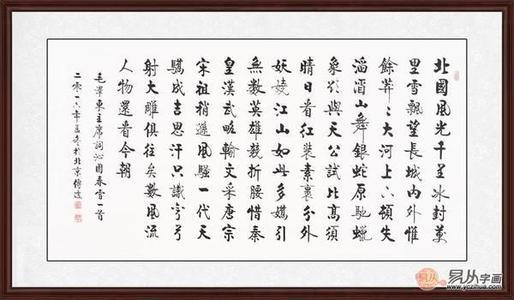 北國風光千里冰封萬
里雪飄望長城內外惟
餘莽々大河上下頓失
滔滔山舞銀蛇原馳蠟
象欲與天公試比高須
晴日看紅裝素裹分外
妖嬈江山如此多嬌引
無數英雄競折腰惜秦
皇漢武略輸文采唐宗
宋祖稍遜風騷一代天
驕成吉思汗只識彎弓
射大雕俱往矣數風流
人物還看今朝
毛澤東主席詞沁園春雪一首
二零一六年冬於北京
易从字画
www.yczihua.com